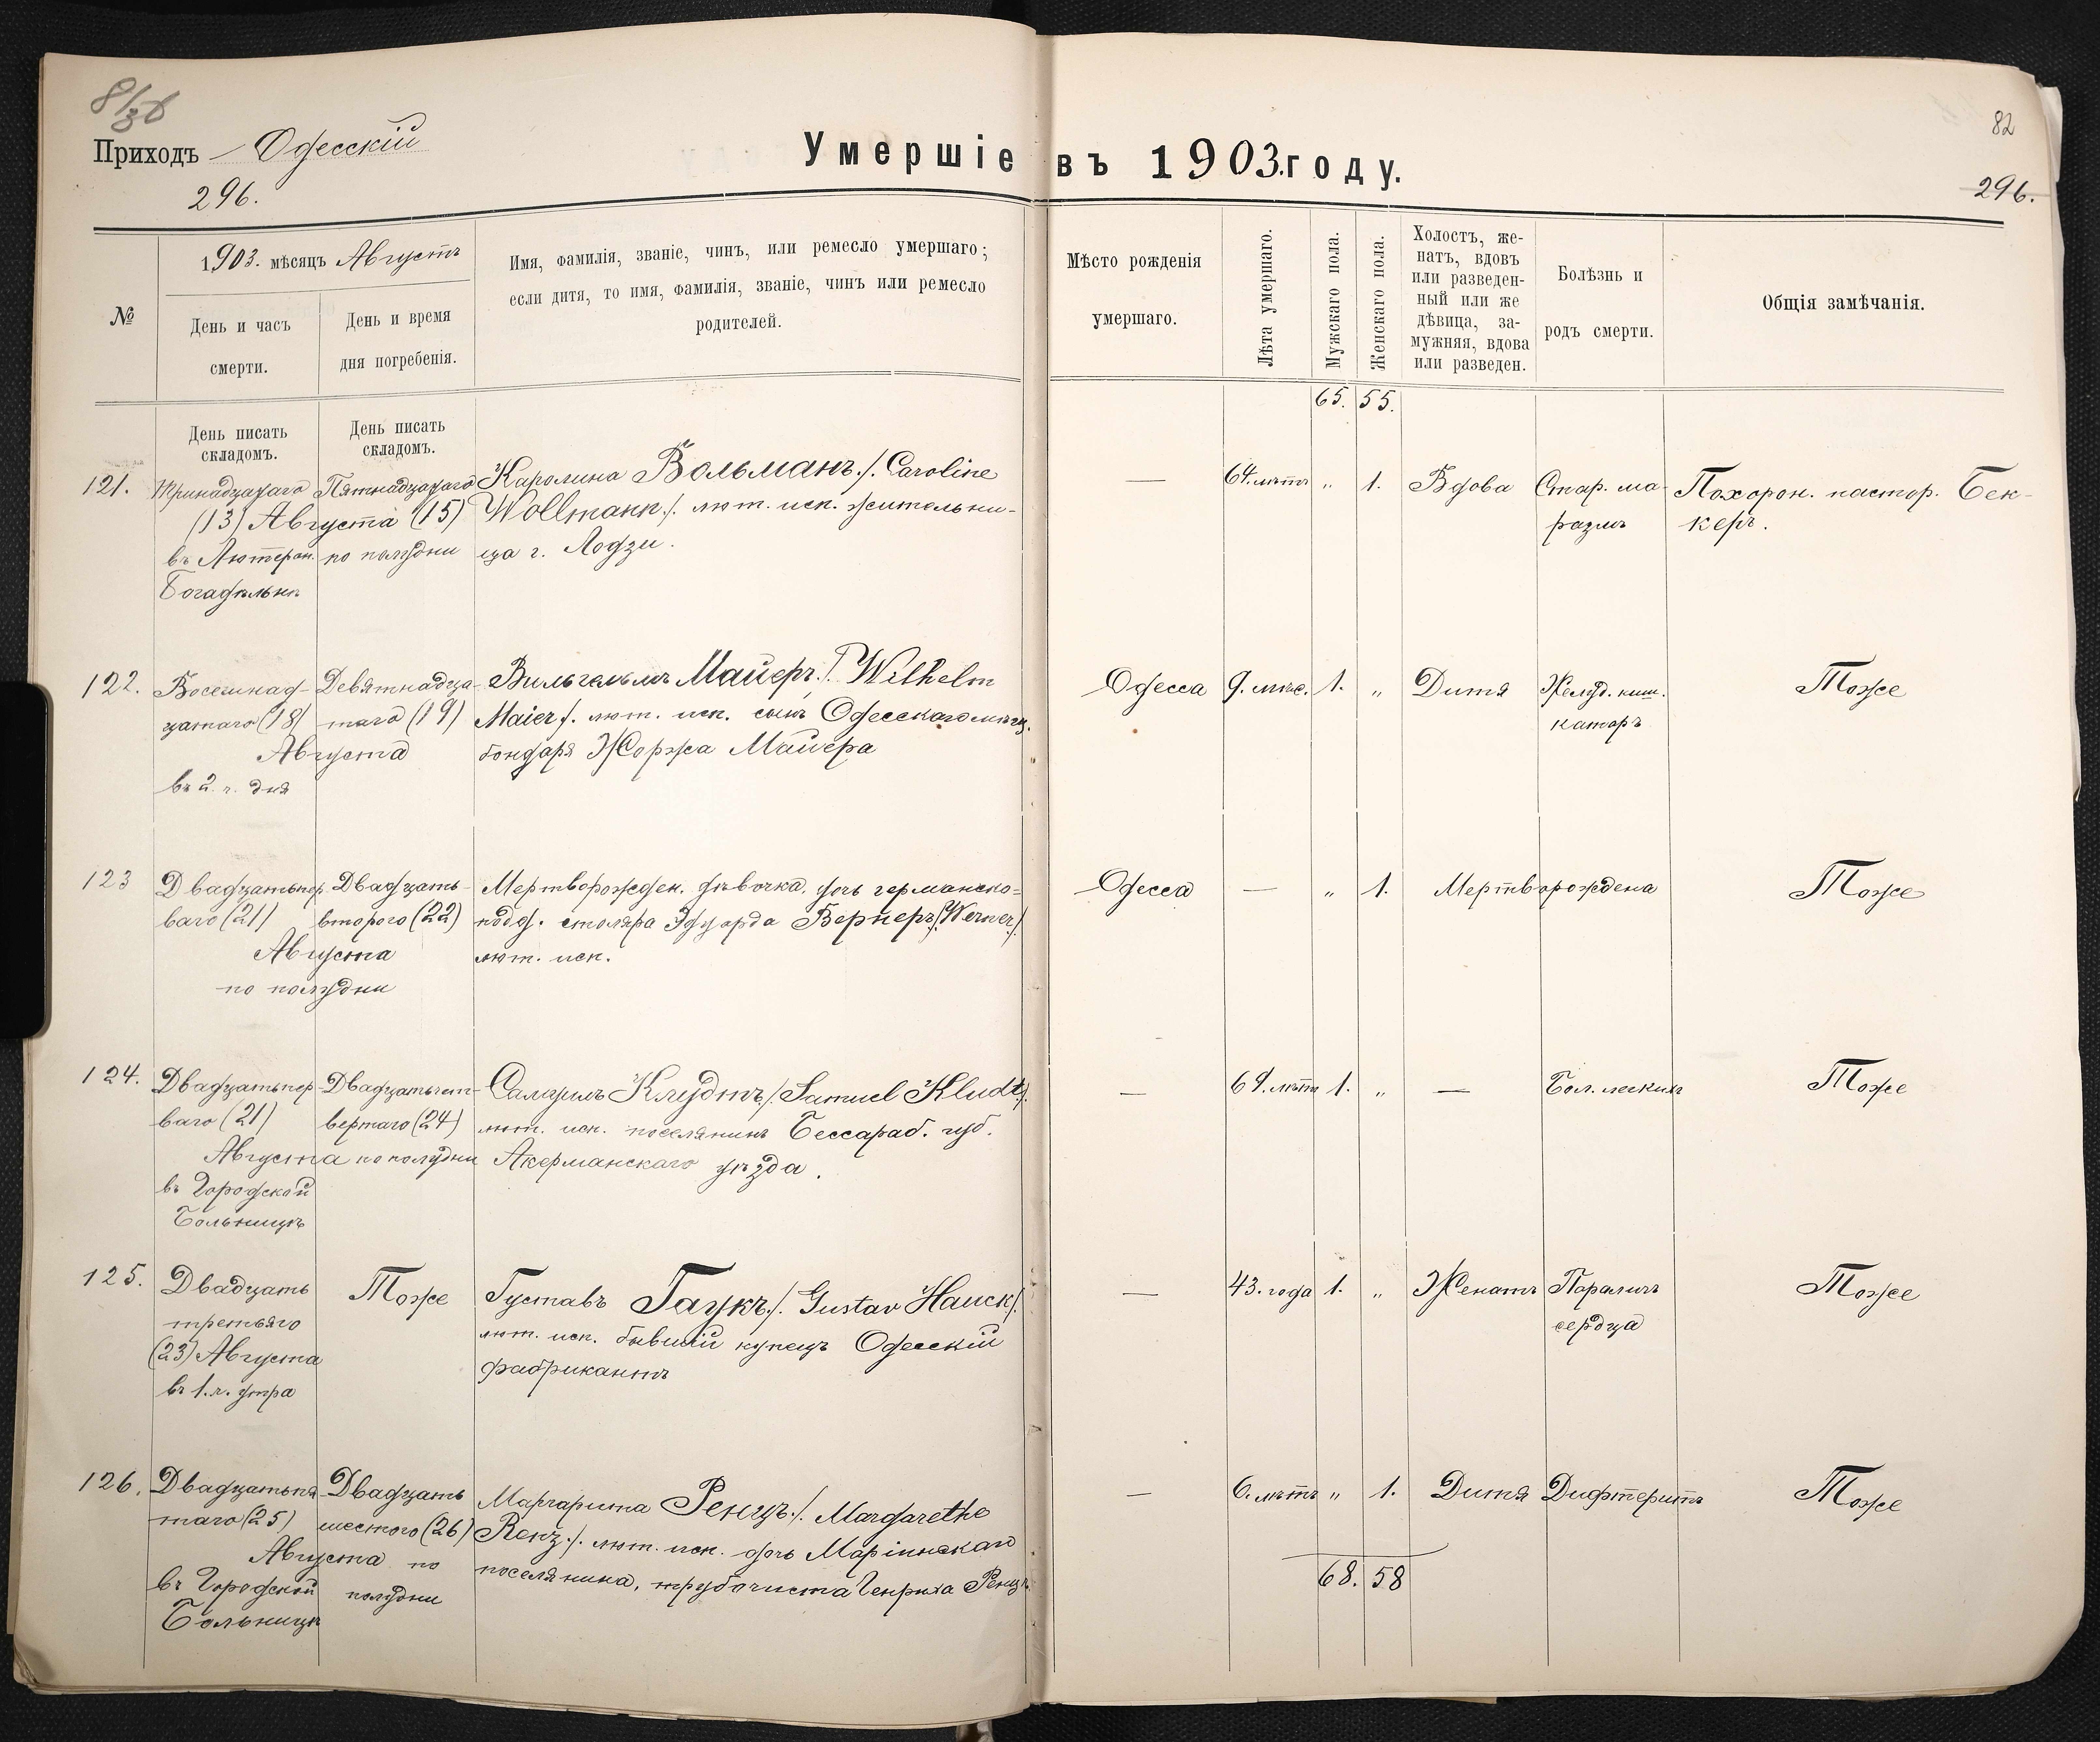 8/36
82
Приходъ Одесскій
Умершіе въ 1903.году.
296.
296.
№
1903. мѣсяцъ Августъ
День и часъ
смерти.
День и время
дня погребенія.
Имя, фамилія, званіе, чинъ, или ремесло умершаго;
если дитя, то имя, фамилія, званіе, чинъ или ремесло
родителей.
Мѣсто рожденія
умершаго.
Лѣта умершаго.
Мужскаго пола.
Женскаго пола.
Холостъ, же-
натъ, вдовъ
или разведен-
ный или же
дѣвица, за-
мужняя, вдова
или разведен.
Болѣзнь и
родъ смерти.
Общія замѣчанія.
65. 55.
День писать
складомъ.
День писать
складомъ.
121.
Тринадцатаго
(13) Августа
въ Лютеран.
Богадѣльнѣ
Пятнадцатаго
(15)
по полудни
Каролина Вольманъ /. Caroline
Wollmann /. лют. исп. жительни-
ца г. Лодзи.
— 64. лѣтъ „ 1. Вдова
Стар. ма-
размъ
Похорон. пастор. Бек-
керъ.
122.
Восемнад-
цатаго (18)
Августа
въ 2. ч. дня
Девятнадца-
таго (19)
Вильгельмъ Майеръ /. Wilhelm
Maier /. лют. исп. сынъ Одесскаго мѣщ.
бондаря Жоржа Майера
Одесса 9. мѣс. 1. „ Дитя
Желуд. киш.
катаръ
Тоже
123
Двадцатьпер
ваго (21)
Августа
по полудни
Двадцать-
второго (22)
Мертворожден. дѣвочка, дочь германско-
подд. столяра Эдуарда Вернеръ /. Werner /.
лют. исп.
Одесса — „ 1. Мертворождена
Тоже
124.
Двадцатьпер
ваго (21)
Августа
въ Городской
Больницѣ
Двадцатьчет-
вертаго (24)
по полудни
Самуилъ Клудтъ /. Samuel Kludt /.
лют. исп. поселянинъ Бессараб. губ.
Акерманскаго уѣзда.
— 69. лѣтъ 1. „ — Бол. легкихъ
Тоже
125.
Двадцать
третьяго
(23) Августа
въ 1. ч. утра
Тоже
Густавъ Гаукъ /. Gustav Hauck /.
лют. исп. бывшій купецъ Одесскій
фабрикантъ
— 43. года 1. „ Женатъ
Параличъ
сердца
Тоже
126.
Двадцатьпя
таго (25)
Августа
въ Городской
Больницѣ
Двадцать
шестого (26)
по
полудни
Маргарита Ренцъ /. Margarethe
Renz /. лют. исп. дочь Маріинскаго
поселянина, трубочиста Генриха Ренцъ
— 6. лѣтъ „ 1. Дитя Дифтеритъ
Тоже
68. 58